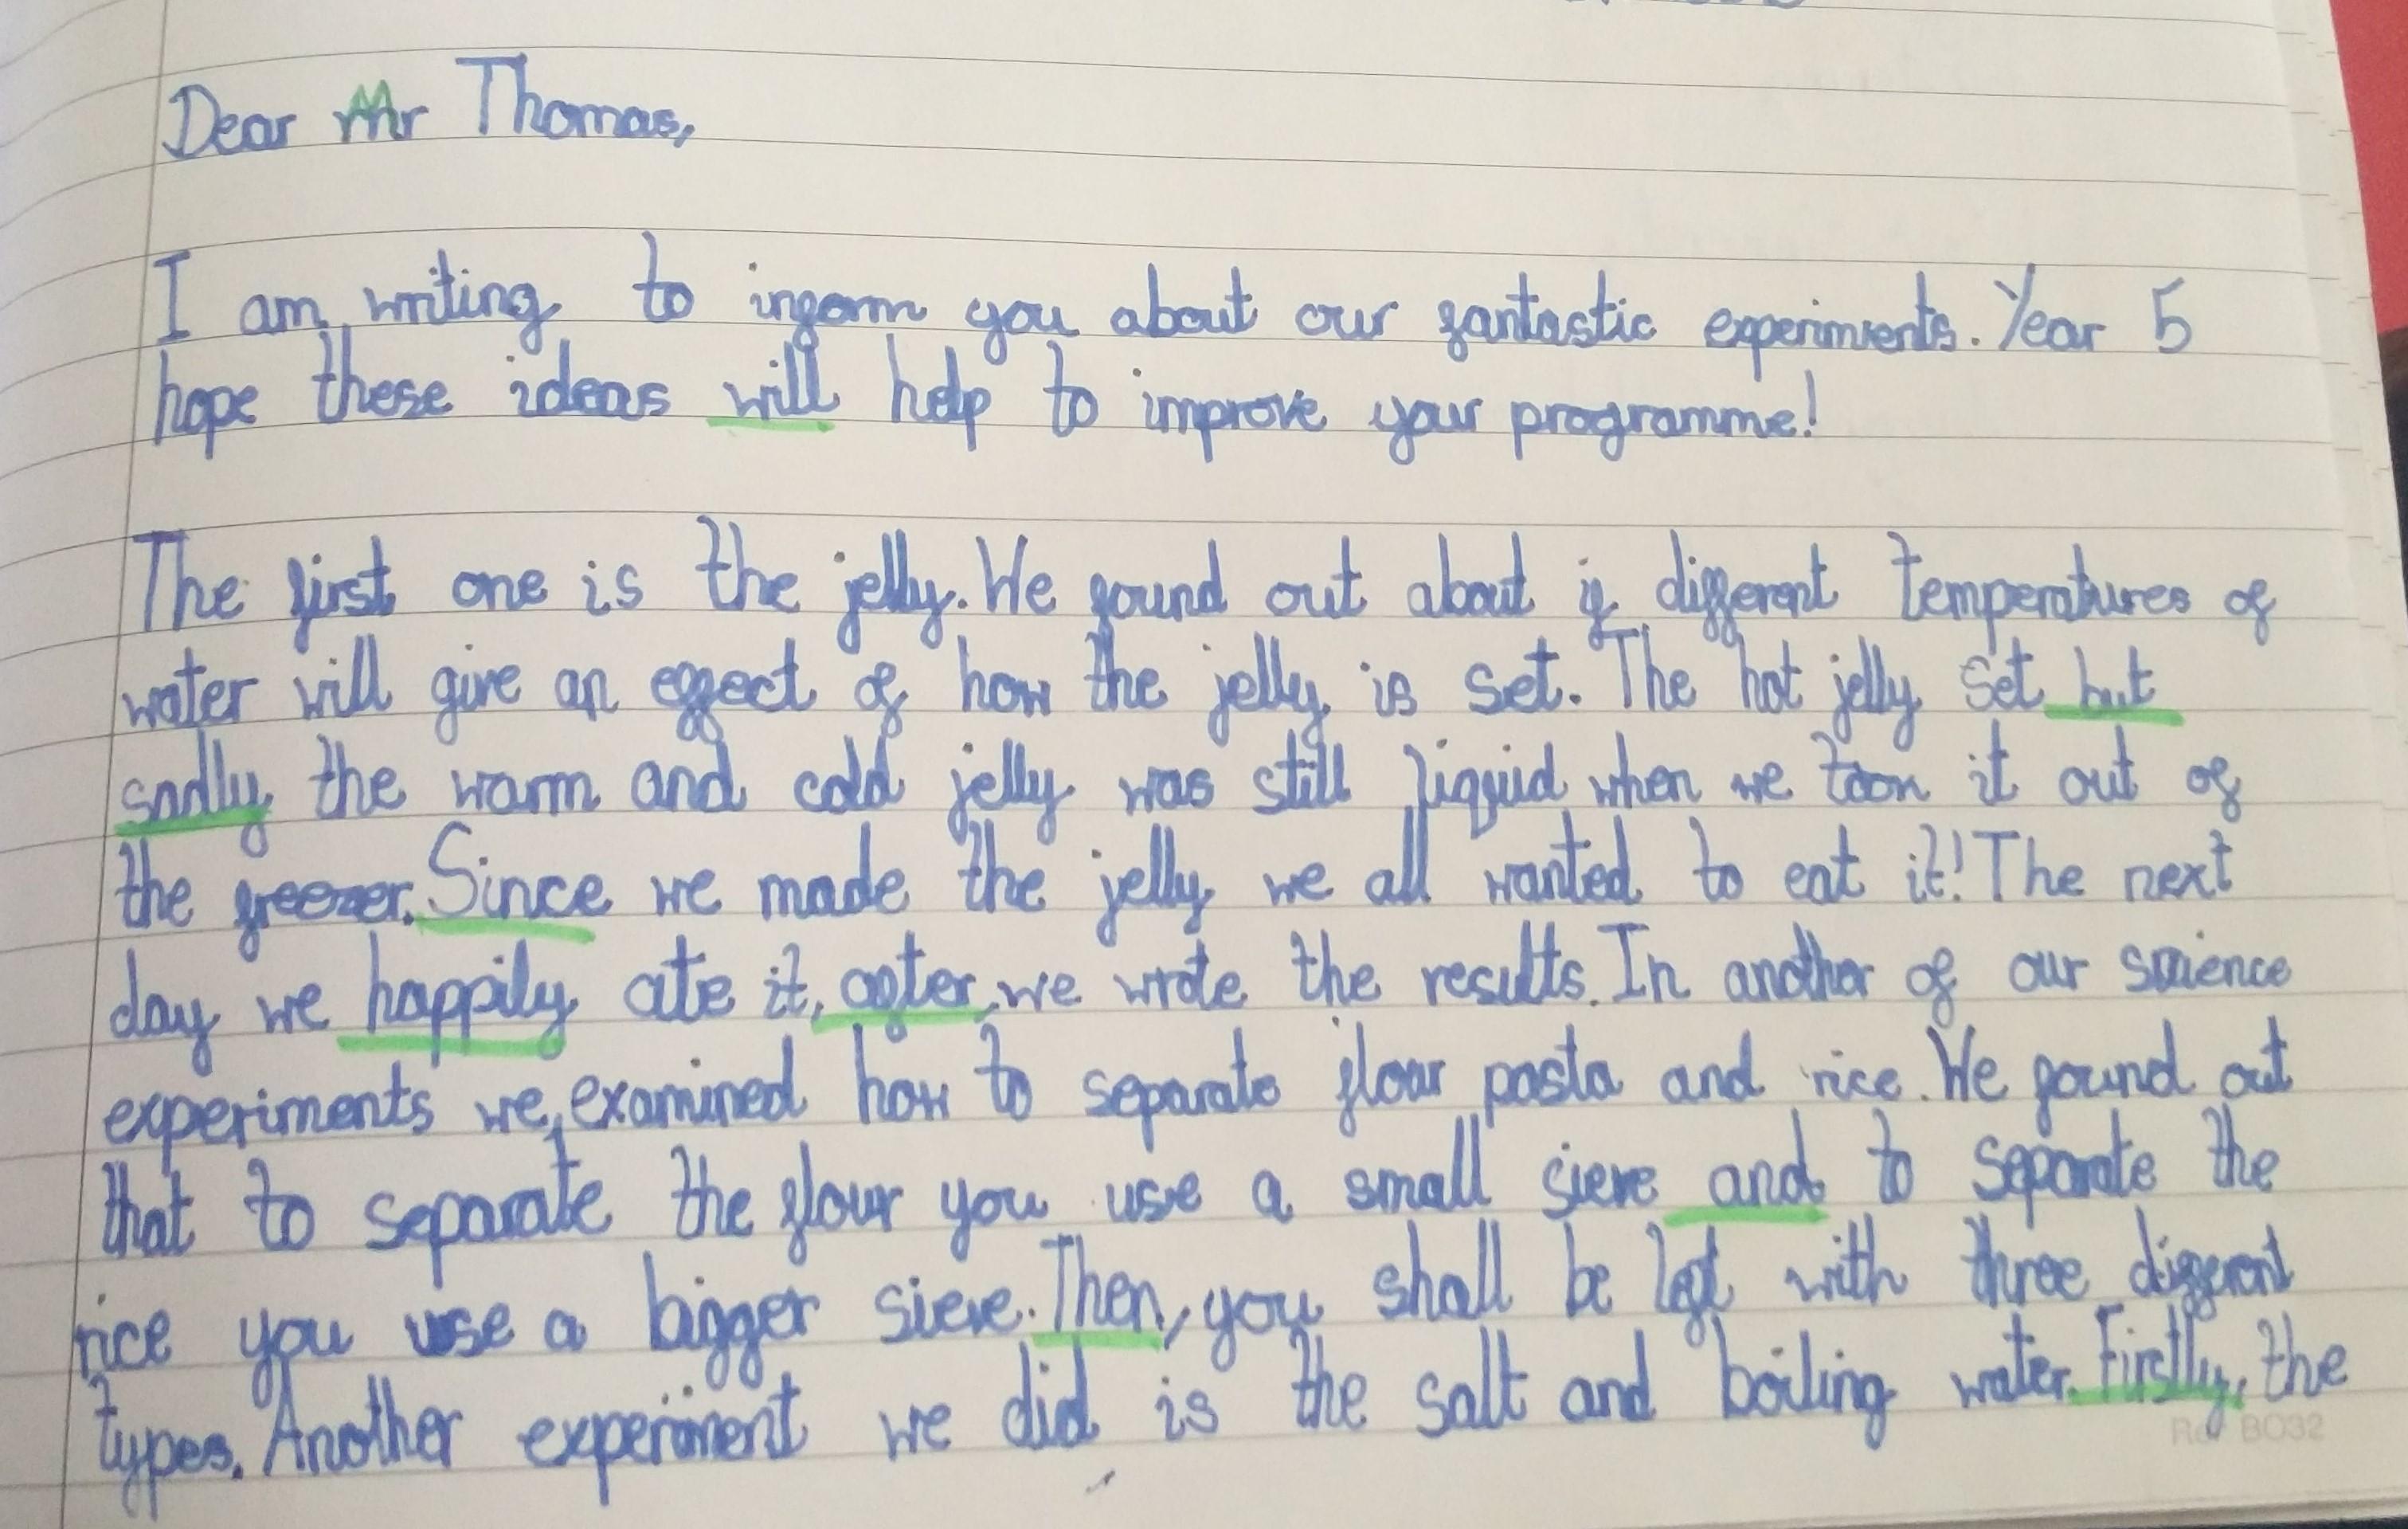 Dear Mr Thomas,
I am writing to inform you about our fantastic experiments. Year 5
hope these ideas will help to improve your programme!
The first one is the jelly. We found out about if different temperatures of
water will give an effect of how the jelly is set. The hot jelly set but
sadly the warm and cold jelly was still liquid when we toon it out of
the freezer. Since we made the jelly we all wanted to eat it! The next
day we happily ate it, after we wrote the results. In another of our
experiments we examined how to separate flour pasta and rice. We found out
that to separate the flour you use a small sieve and to separate the
rice you use a bigger sieve. Then, you shall be left with three different
types. Another experiment we did is the salt and boiling water. Firstly, the
Ref BO32